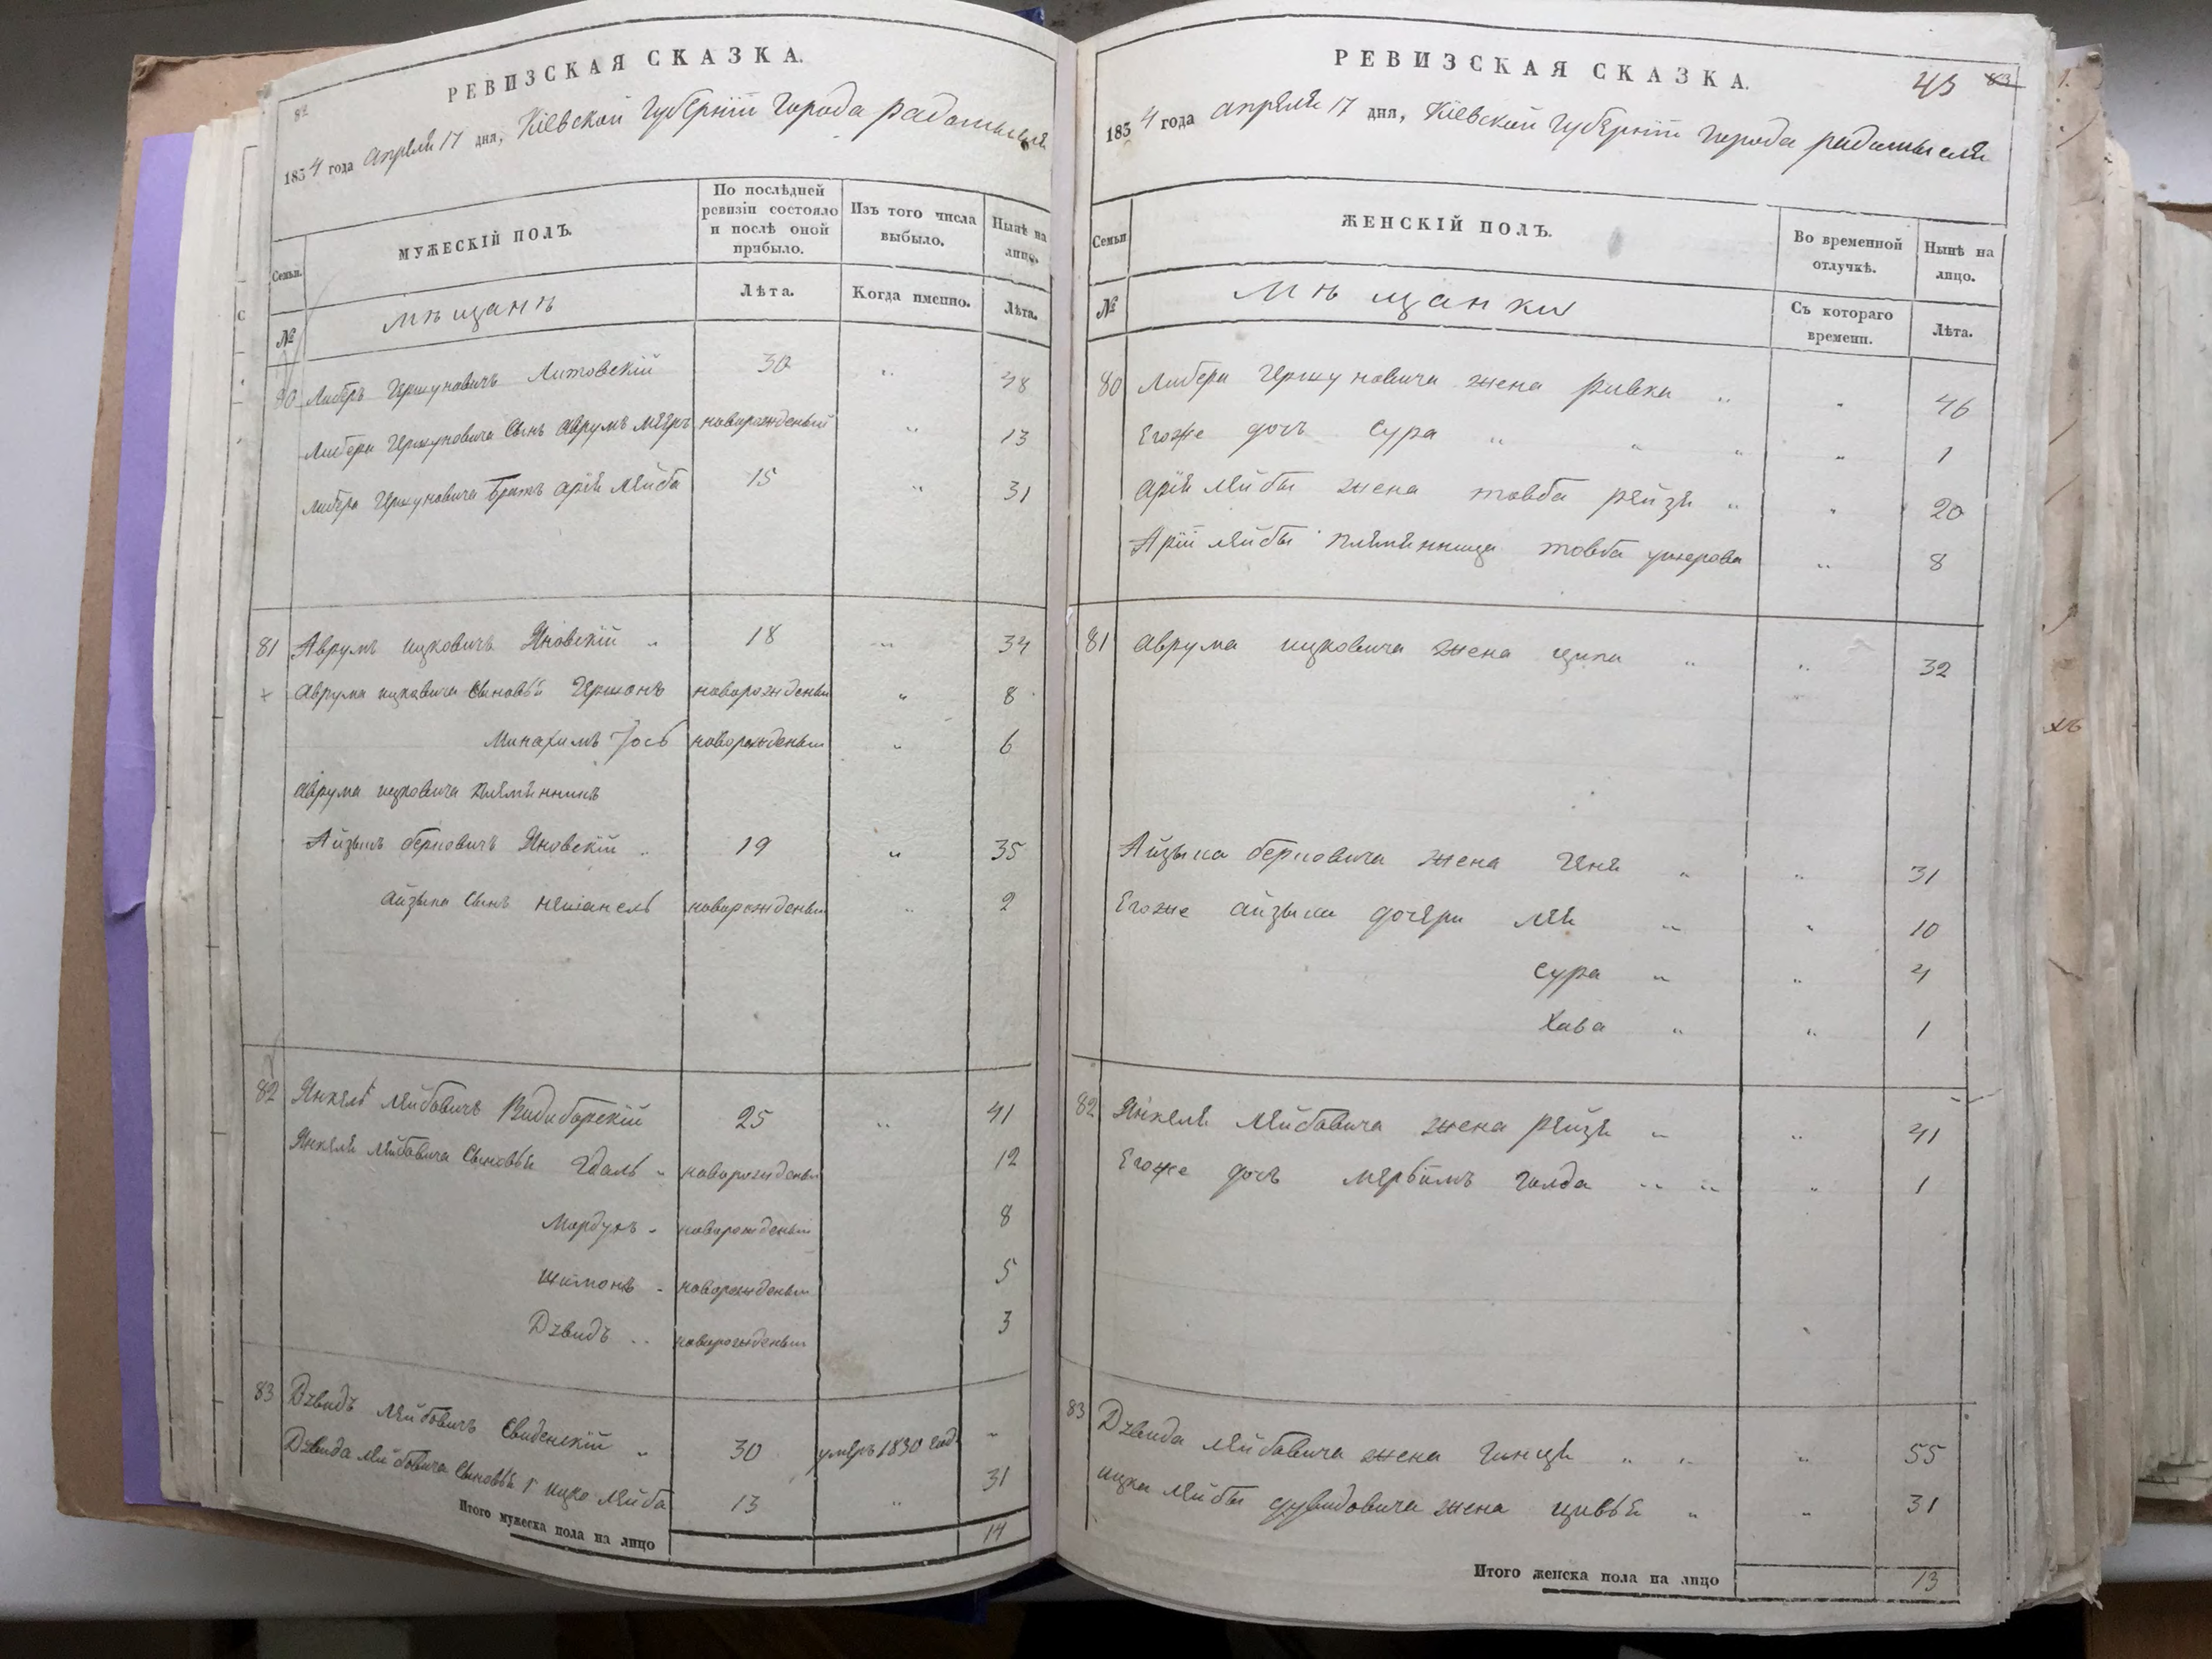 82
РЕВИЗСКАЯ СКАЗКА.
1854 года апреля 17 дня, Кіевской Губерніи города радомысля
Семьи.
МУЖЕСКІЙ ПОЛЪ.
По послѣдней ревизіи состояло и послѣ оной прибыло.
Изъ того числа выбыло.
Нынѣ на лицо.
№
мѣщанѣ
Лѣта.
Когда именно.
Лѣта.
80 Либеръ Гершуновичъ Литовскій 30 " 48
Либера Гершуновича Сынъ Аврумъ Меэръ новорожденый " 13
Либера Гершуновича Братъ Арія Лейба 15 " 31
81 Аврумъ ицковичъ Яновскій " 18 " 34
+ Аврума ицковича Сыновья Гершонъ новорожденый " 8
Минахимъ Іось новорожденый " 6
Аврума ицковича племянникъ
Айзыкъ берковичъ Яновскій " 19 " 35
Айзыка Сынъ новорожденый " 2
82 Янкель Лейбовичъ Видиборскій 25 " 41
Янкеля Лейбовича Сыновья Гдаль " новорожденый 12
Мордухъ " новорожденый 8
Шимонъ " новорожденый 5
Дувидъ " новорожденый 3
83 Дувидъ Лейбовичъ Свиденскій " 30 умеръ 1850 года "
Дувида Лейбовича Сыновья 1 ицко Лейба 13 " 31
Итого мужеска пола на лицо 14
РЕВИЗСКАЯ СКАЗКА.
43 83
1854 года апреля 17 дня, Кіевской Губерніи города радомысля
Семьи
ЖЕНСКІЙ ПОЛЪ.
Во временной отлучкѣ.
Нынѣ на лицо.
№
мѣщанки
Съ котораго времени.
Лѣта.
80 Либера Гершуновича жена ривка " " 46
Егоже дочь Сура " " " " 1
Арія лейбы жена товба рейзя " " 20
Арій лейбы племянница товба ушерова " 8
81 Аврума ицковича жена ципа " " 32
Айзыка берковича жена Геня " " 31
Егоже айзыка дочери лея " " 10
Сура " " 4
Хава " " 1
82 Янкеля Лейбовича жена рейзя " " 41
Егоже дочь голда " " " 1
83 Дувида Лейбовича жена " " " 55
ицка лейбы дувидовича жена цивья " " 31
Итого женска пола на лицо 13